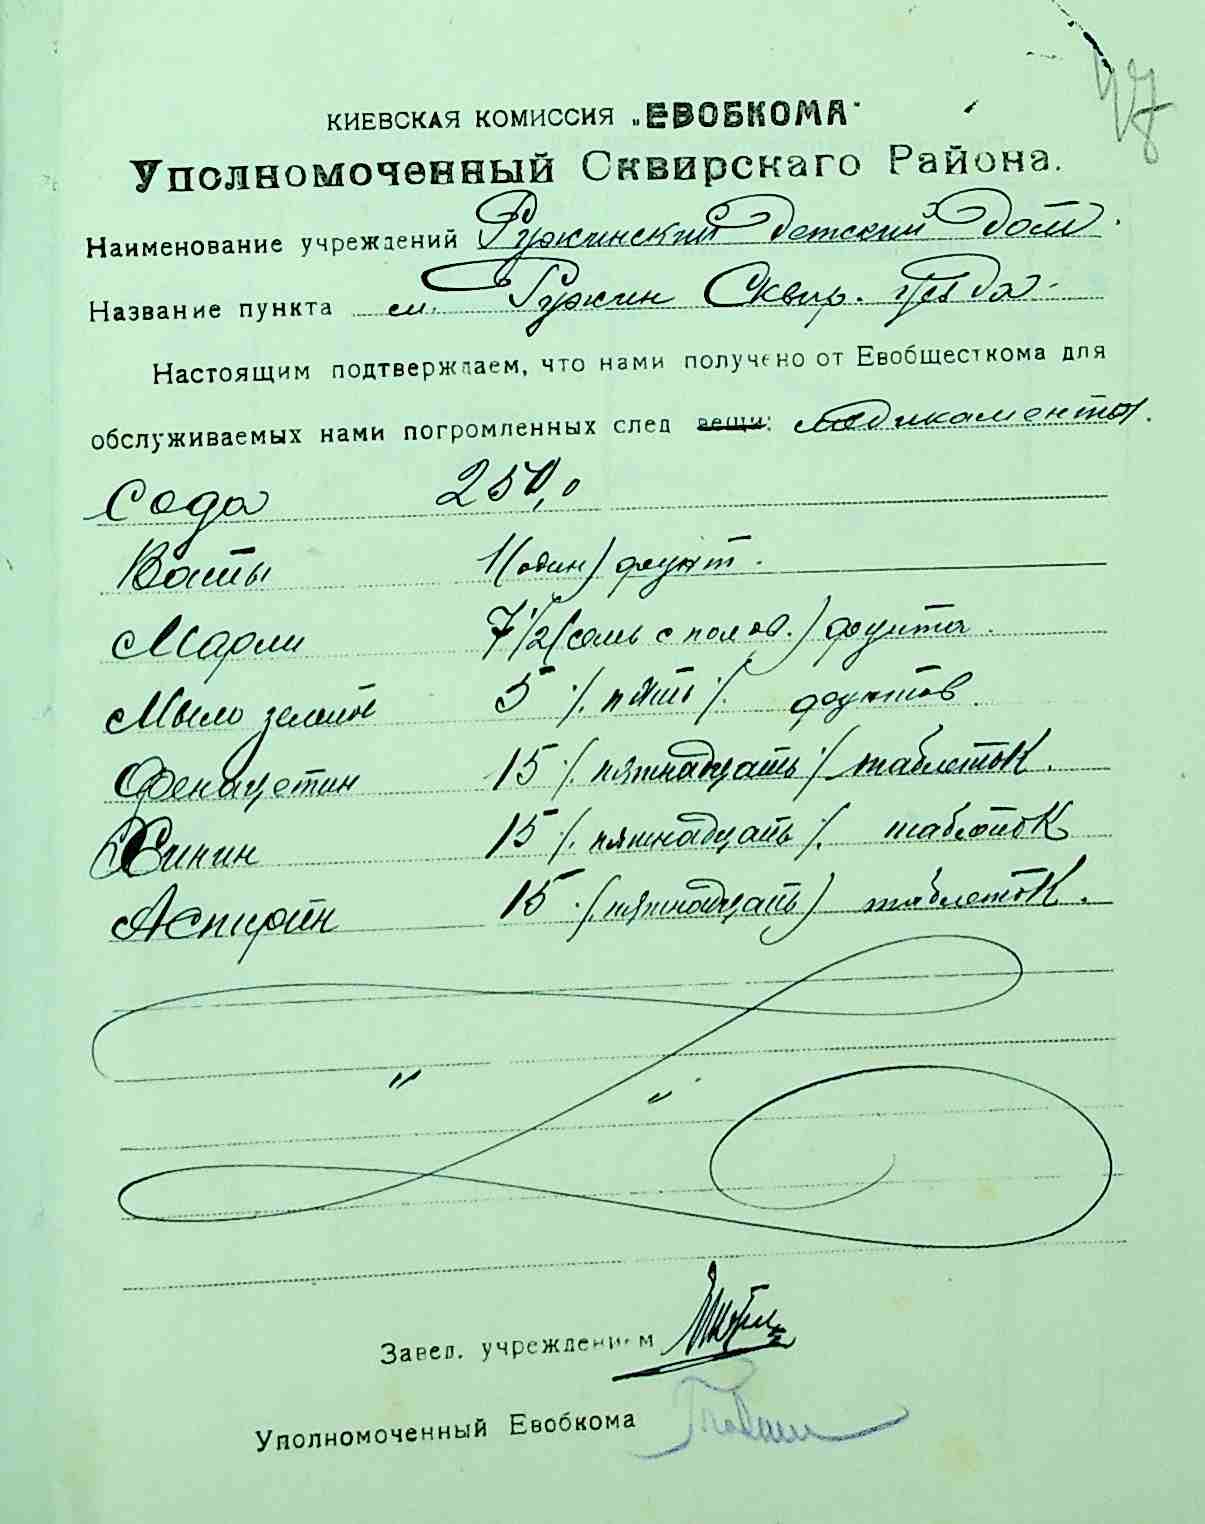 47
КИЕВСКАЯ КОМИССИЯ „ЕВОБКОМА"
Уполномоченный Сквирскаго Района.
Наименование учреждений Ружинский детский дом.
Название пункта м. Ружин Сквир. уезда.
Настоящим подтверждаем, что нами получено от Евобщесткома для
обслуживаемых нами погромленных след вещи: медикаменты.
Сода 250,0
Ваты 1 (один) фунт.
Марли 7 1/2 (семь с полов.) фунта.
Мыло зелен 5 /. пять /. фунтов.
Фенацетин 15 /. пятнадцать /. таблеток.
Хинин 15 /. пятнадцать /. таблеток
Аспирин 15 (пятнадцать) таблеток.
" "
Завед. учреждением
Уполномоченный Евобкома